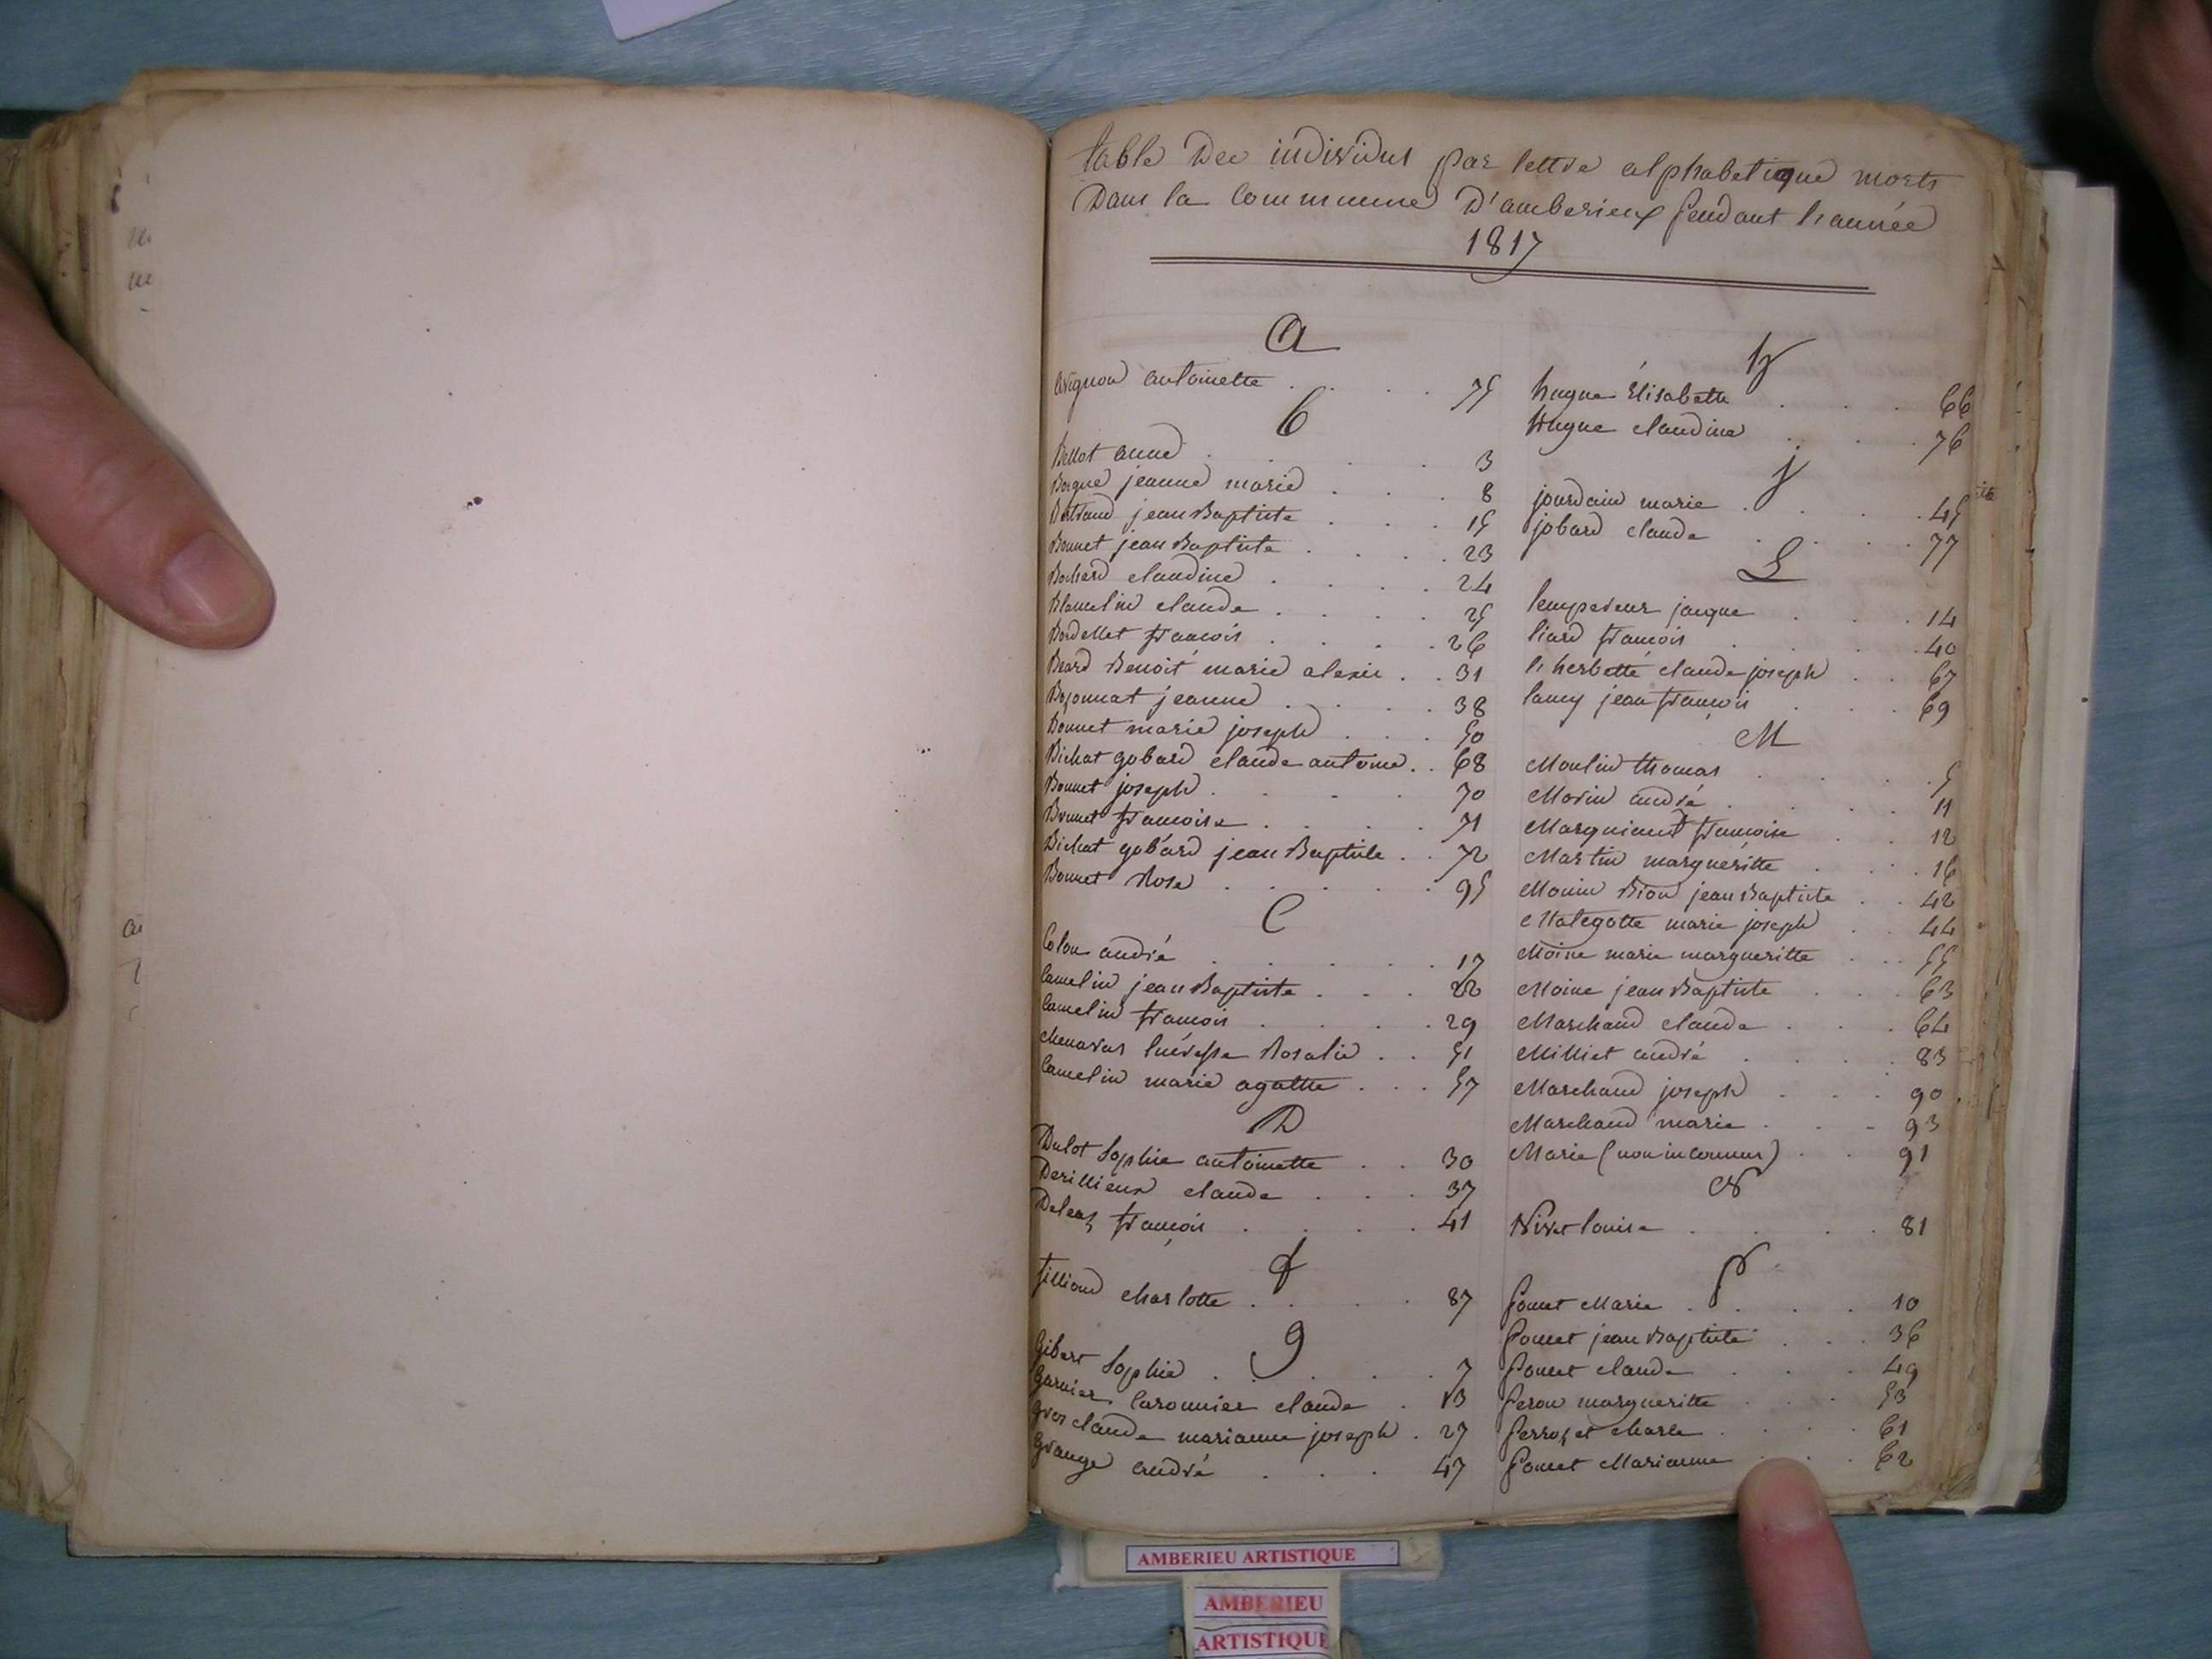 table Des individus par lettre alphabetique morts
Dans la Commmune D'amberieux pendant l'année
1817
a
avignon antoinette . . . . 75
b
Bellot anne . . . . 3
Borgne jeanne marie . . . 8
Bertrand jean Baptiste . . . 15
Bonnet jean Baptiste . . . . 23
Bochard claudine . . . . 24
Blamelin claude . . . . 25
Bordellet françois . . . . 26
Beard Benoit marie alexis . . 31
Bozonnat jeanne . . . . 38
Bonnet marie joseph . . . 50
Bichat gobard claude antoine . . 68
Bonnet joseph . . . . 70
Bonnet françoise . . . . 71
Bichat gobard jean Baptiste . . 72
Bonnet Rose . . . . . 95
C
Colon andré . . . . . 17
Camelin jean Baptiste . . . 22
Camelin françois . . . . 29
Rosalie . . 51
Camelin marie agathe . . . 57
D
Dulot Sophie antoinette . . 30
Derillieux claude . . . 37
françois . . . . 41
f
filliond charlotte . . . . 87
g
Gibert Sophie . . . . . 7
Garnier Caronnier claude . 13
Gros claude marianne joseph . 27
Grange andré . . . 47
h
hugue Élisabette . . . 66
hugue claudine . . . 76
j
jourdain marie . . . . 45
jobard claude . . . . 77
L
lempereur jacque . . . 14
liard françois . . . . 40
l'herbette claude joseph . . 67
lamy jean françois . . . 69
M
Moulin thomas . . . . 5
Morin andré . . . . 11
Marguiand françoise . . 12
Martin margueritte . . . 16
Monin Bion jean Baptiste . . 42
Malegotte marie joseph . . 44
Moine marie margueritte . . . 55
Moine jean Baptiste . . . 63
Marchand claude . . . . 64
Milliet andré . . . . 83
Marchand joseph . . . . 90
Marchand marie . . . 93
Marie (non inconnus) . . 91
N
Nivet louise . . . . 81
p
ponet Marie . . . . 10
ponet jean Baptiste . . . 36
ponet claude . . . 49
peron margueritte . . . 53
perrozet charle . . . . 61
ponet Marianne . . . 62
AMBERIEU ARTISTIQUE
AMBERIEU
ARTISTIQUE